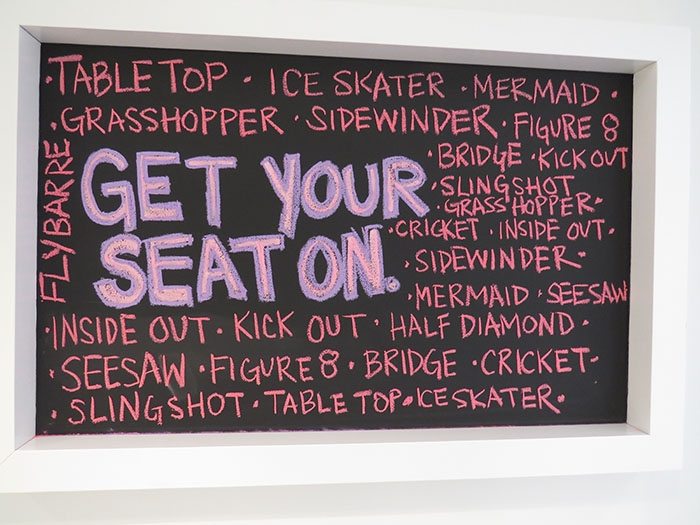 ·TABLE TOP · ICE SKATER · MERMAID ·
·GRASSHOPPER · SIDEWINDER · FIGURE 8
FLYBARRE
GET YOUR
SEAT ON.
·BRIDGE · KICK OUT
·SLINGSHOT
·GRASSHOPPER·
·CRICKET · INSIDE OUT·
·SIDEWINDER·
·MERMAID · SEESAW
·INSIDE OUT · KICK OUT · HALF DIAMOND ·
·SEESAW · FIGURE 8 · BRIDGE · CRICKET·
· SLINGSHOT · TABLE TOP · ICE SKATER ·